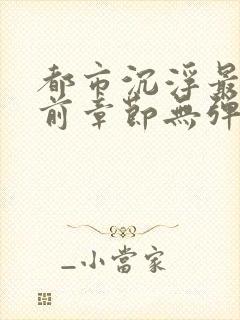 都市沉浮最
前章節無彈
_小當家